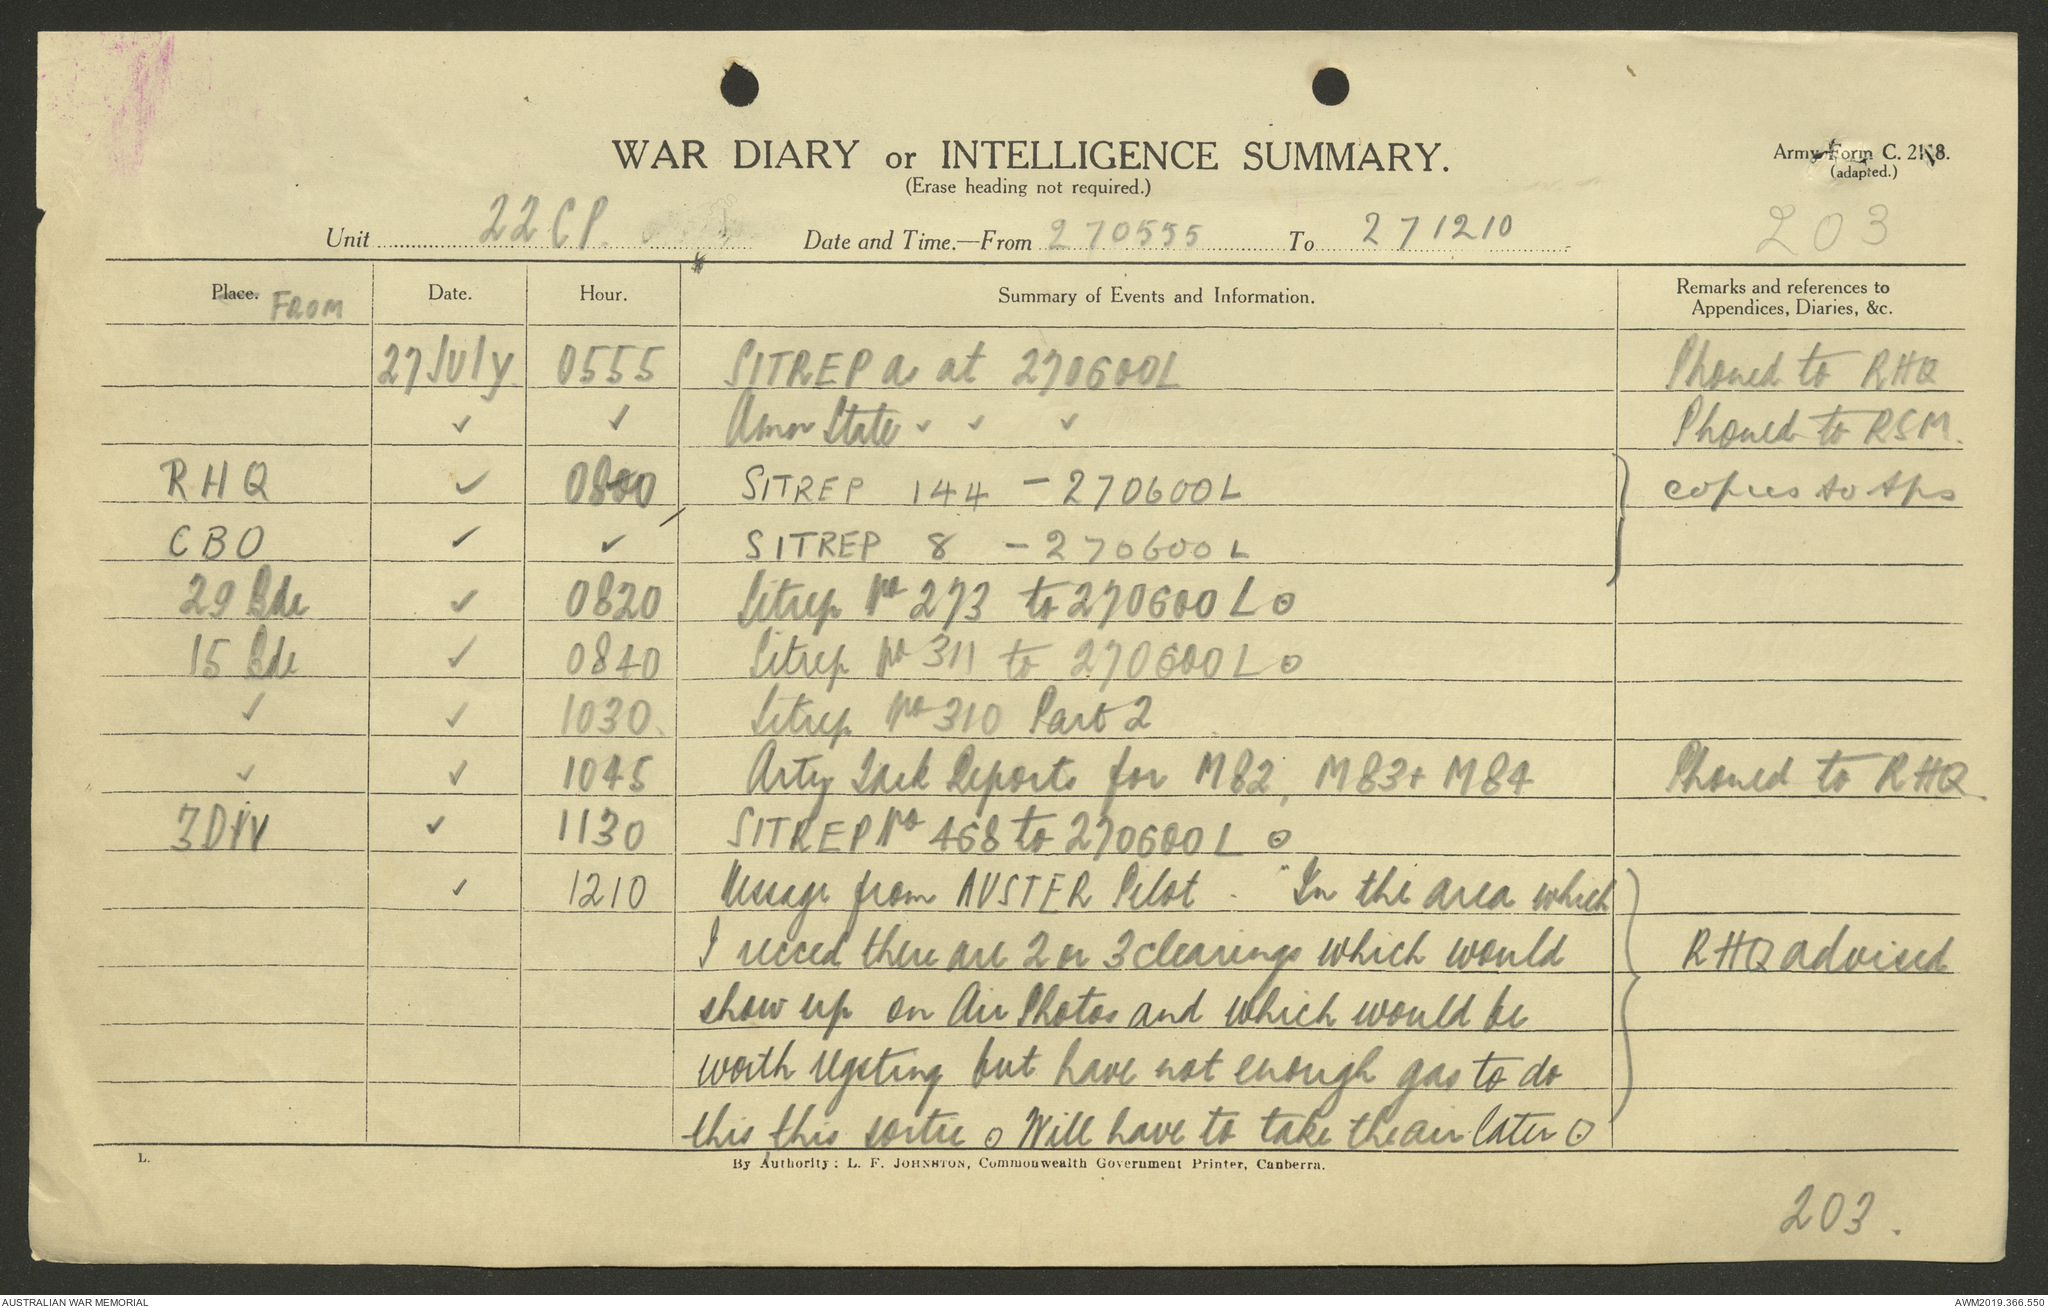 WAR DIARY or INTELLIGENCE SUMMARY.
(Erase heading not required.)
Army Form C. 2118.
(adapted.)
203
Unit 22 CP. Date and Time.—From 270555 To 271210
Place. FROM Date. Hour. Summary of Events and Information. Remarks and references to Appendices, Diaries, &c.
27 July 0555 SITREP as at 270600L Phoned to RHQ
✓ ✓ Amn State ✓ ✓ ✓ Phoned to RSM.
RHQ ✓ 0800 SITREP 144 – 270600L } copies to tps
CBO ✓ ✓ SITREP 8 – 270600L
29 Bde ✓ 0820 Sitrep No 273 to 270600L ⊙
15 Bde ✓ 0840 Sitrep No 311 to 270600L ⊙
✓ ✓ 1030 Sitrep No 310 Part 2
✓ ✓ 1045 Arty Task Reports for M82, M83 + M84 Phoned to RHQ.
3 DIV ✓ 1130 SITREP No 468 to 270600L ⊙
✓ 1210 Message from AUSTER Pilot - "In the area which
I recced there are 2 or 3 clearings which would } RHQ advised
show up on Air Photos and which would be
worth regstrng but have not enough gas to do
this this sortie ⊙ Will have to take the air later ⊙
L. By Authority: L. F. JOHNSTON, Commonwealth Government Printer, Canberra.
203.
AUSTRALIAN WAR MEMORIAL AWM2019.366.550